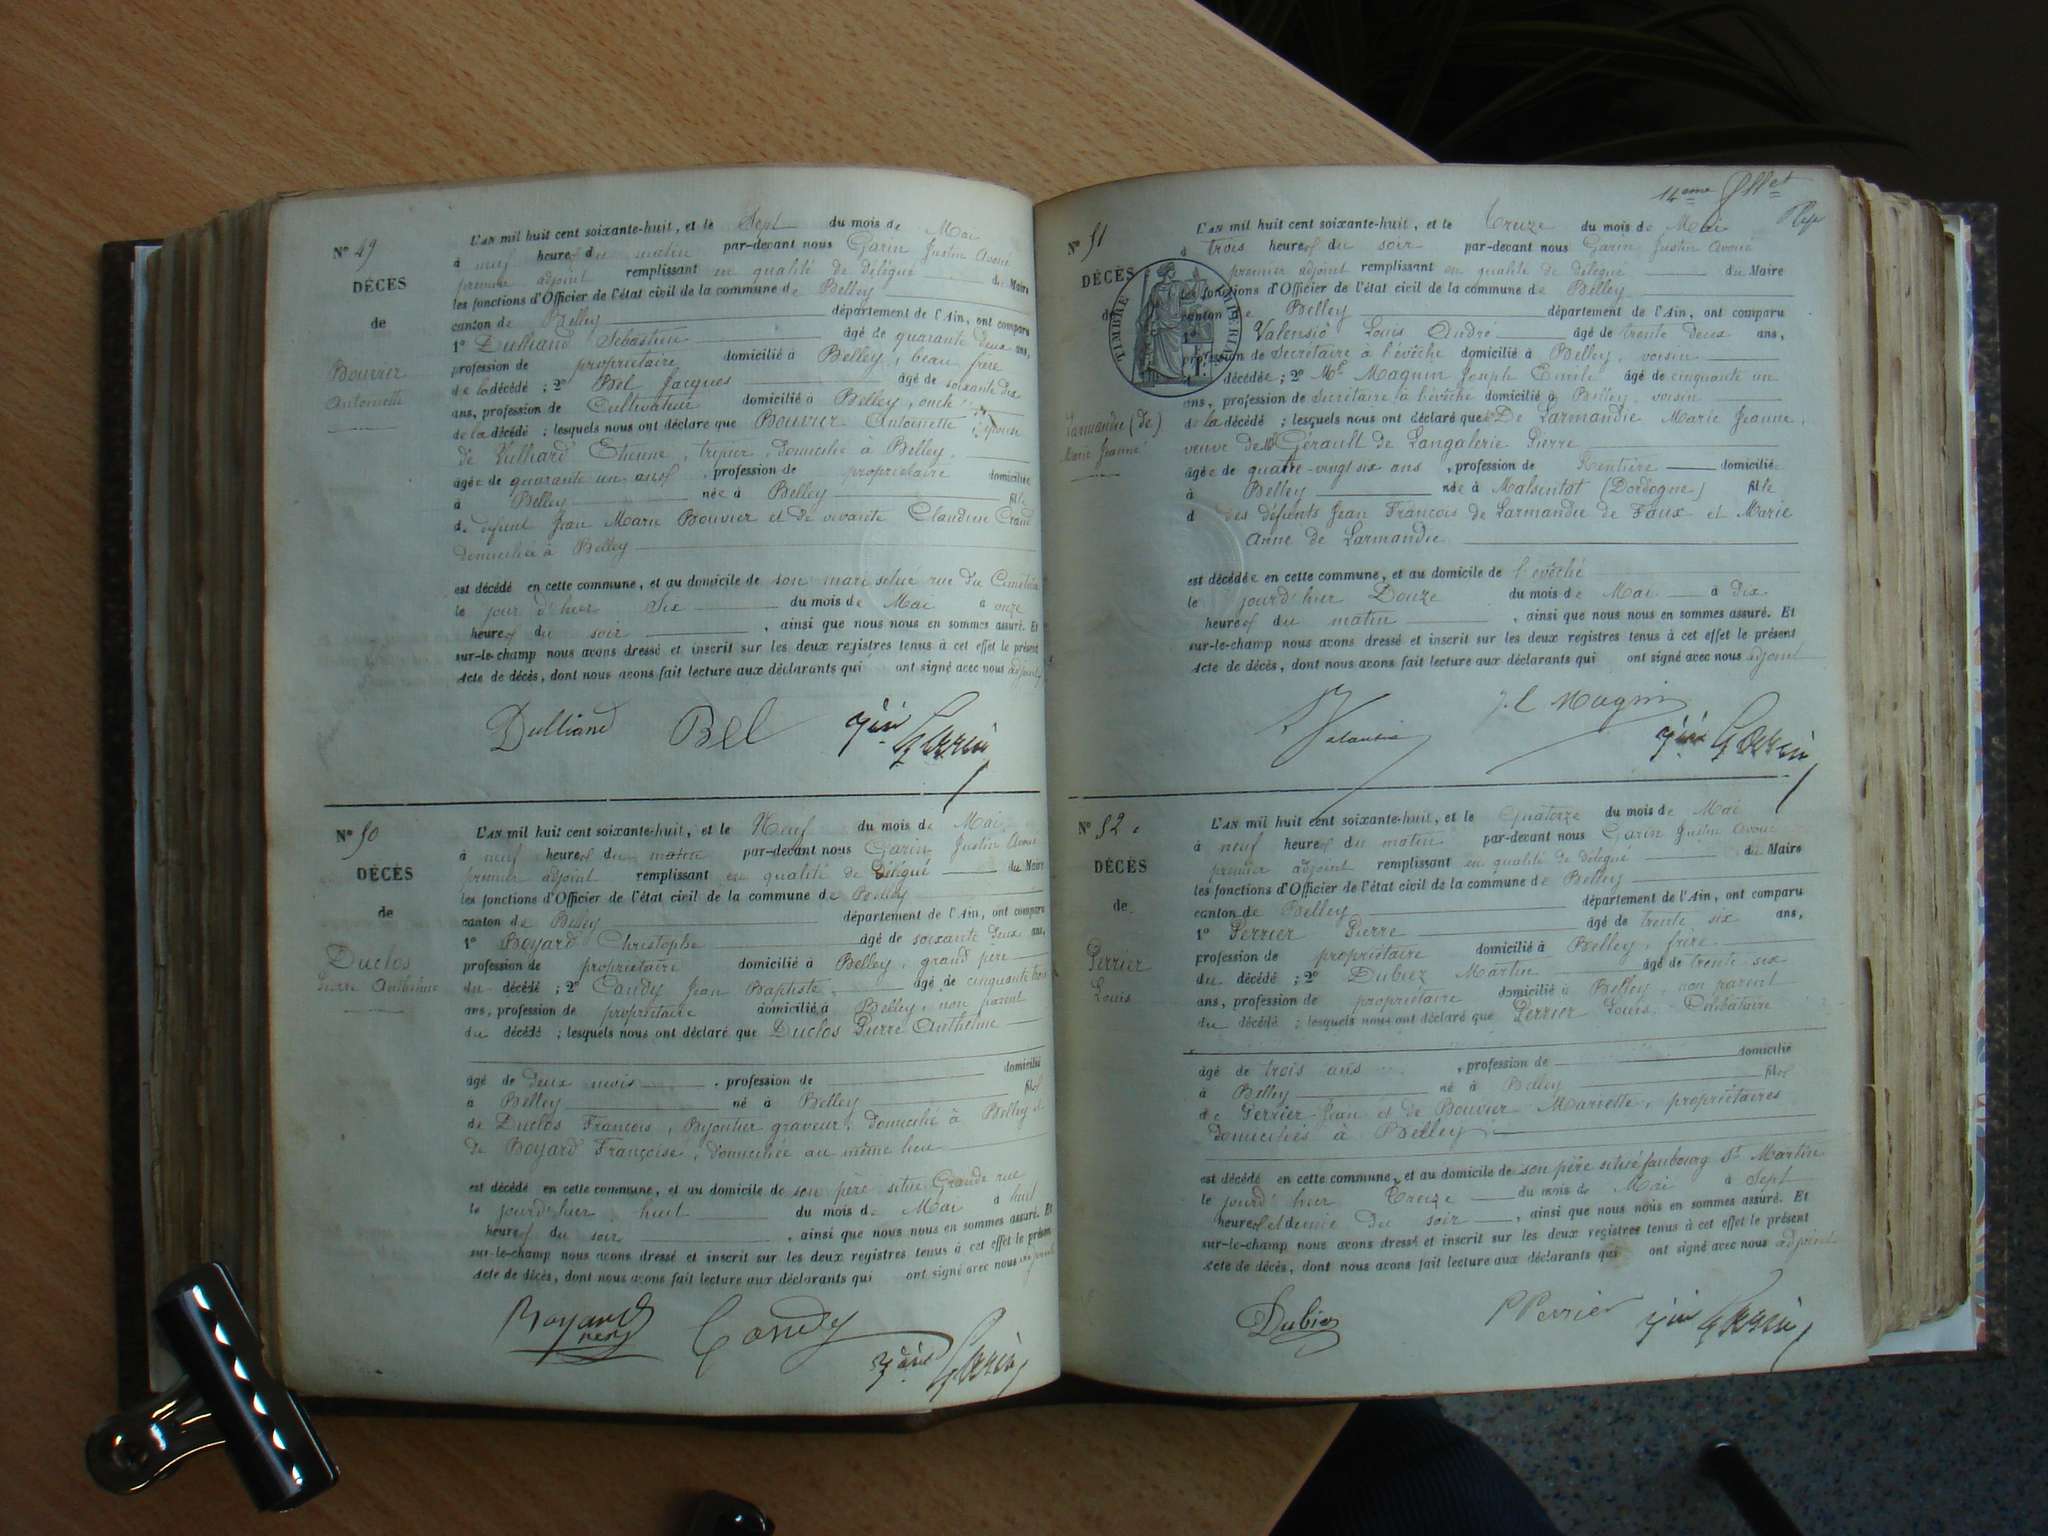 Nº 49
DÉCÈS
de
Bouvier
Antoinette
L'AN mil huit cent soixante-huit, et le Sept du mois de Mai
à neuf heures du matin par-devant nous Garin Justin Avoué
premier adjoint remplissant en qualité de délégué du Maire
les fonctions d'Officier de l'état civil de la commune de Belley
canton de Belley département de l'Ain, ont comparu
1º Dulliand Sébastien âgé de quarante deux ans,
profession de propriétaire domicilié à Belley, beau frère
de la décédé ; 2º Bel Jacques âgé de soixante dix
ans, profession de Cultivateur domicilié à Belley, oncle
de la décédé ; lesquels nous ont déclaré que Bouvier Antoinette épouse
de Vulliard Etienne, tripier, domicilié à Belley,
âgée de quarante un ans, profession de propriétaire domiciliée
à Belley née à Belley fille
de défunt Jean Marie Bouvier et de vivante Claudine
domiciliée à Belley
est décédé en cette commune, et au domicile de son mari situé rue du Cimetière
le jour d'hier Six du mois de Mai à onze
heures du soir, ainsi que nous nous en sommes assuré. Et
sur-le-champ nous avons dressé et inscrit sur les deux registres tenus à cet effet le présent
Acte de décès, dont nous avons fait lecture aux déclarants qui ont signé avec nous adjoint
Dulliand Bel Garin
Nº 50
DÉCÈS
de
Duclos
Pierre Anthelme
L'AN mil huit cent soixante-huit, et le Neuf du mois de Mai
à neuf heures du matin par-devant nous Garin Justin Avoué
premier adjoint remplissant en qualité de délégué du Maire
les fonctions d'Officier de l'état civil de la commune de Belley
canton de Belley département de l'Ain, ont comparu
1º Boyard Christophe âgé de soixante deux ans,
profession de propriétaire domicilié à Belley, grand père
du décédé ; 2º Candy Jean Baptiste âgé de cinquante trois
ans, profession de propriétaire domicilié à Belley, non parent
du décédé ; lesquels nous ont déclaré que Duclos Pierre Anthelme
âgé de deux mois, profession de domicilié
à Belley né à Belley fils
de Duclos François, Bijoutier graveur, domicilié à Belley et
de Boyard Françoise, domiciliée au même lieu
est décédé en cette commune, et au domicile de son père situé Grande rue
le jourd'hier huit du mois de Mai à huit
heures du soir, ainsi que nous nous en sommes assuré. Et
sur-le-champ nous avons dressé et inscrit sur les deux registres tenus à cet effet le présent
Acte de décès, dont nous avons fait lecture aux déclarants qui ont signé avec nous adjoint
Boyard Candy Garin
14eme
Nº 51
DÉCÈS
de
TIMBRE IMPERIAL
Larmandie (de)
Marie Jeanne
L'AN mil huit cent soixante-huit, et le Treize du mois de Mai
à trois heures du soir par-devant nous Garin Justin Avoué
premier adjoint remplissant en qualité de délégué du Maire
les fonctions d'Officier de l'état civil de la commune de Belley
canton de Belley département de l'Ain, ont comparu
Louis André âgé de trente deux ans,
profession de Secrétaire à l'évêché domicilié à Belley, voisin
décédée ; 2º Mr Magnin Joseph Emile âgé de cinquante un
ans, profession de Secrétaire à l'évêché domicilié à Belley, voisin
de la décédé ; lesquels nous ont déclaré que De Larmandie Marie Jeanne,
veuve de Gérault de Langalerie Pierre
âgée de quatre-vingt six ans, profession de Rentière domiciliée
à Belley née à Malsintat (Dordogne) fille
d des défunts Jean François de Larmandie de Faux et Marie
Anne de Larmandie
est décédée en cette commune, et au domicile de l'évêché
le jourd'hier Douze du mois de Mai à dix
heures du matin, ainsi que nous nous en sommes assuré. Et
sur-le-champ nous avons dressé et inscrit sur les deux registres tenus à cet effet le présent
Acte de décès, dont nous avons fait lecture aux déclarants qui ont signé avec nous adjoint
Magnin Garin
Nº 52
DÉCÈS
de
Perrier
Louis
L'AN mil huit cent soixante-huit, et le Quatorze du mois de Mai
à neuf heures du matin par-devant nous Garin Justin Avoué
premier adjoint remplissant en qualité de délégué du Maire
les fonctions d'Officier de l'état civil de la commune de Belley
canton de Belley département de l'Ain, ont comparu
1º Perrier Pierre âgé de trente six ans,
profession de propriétaire domicilié à Belley, frère
du décédé ; 2º Dubiez Martin âgé de trente six
ans, profession de propriétaire domicilié à Belley, non parent
du décédé ; lesquels nous ont déclaré que Perrier Louis Célibataire
âgé de trois ans, profession de domicilié
à Belley né à Belley fils
de Perrier Jean et de Bouvier Mariette, propriétaires
domiciliés à Belley
est décédé en cette commune, et au domicile de son père situé faubourg St Martin
le jourd'hier Treize du mois de Mai à Sept
heures et demie du soir, ainsi que nous nous en sommes assuré. Et
sur-le-champ nous avons dressé et inscrit sur les deux registres tenus à cet effet le présent
Acte de décès, dont nous avons fait lecture aux déclarants qui ont signé avec nous adjoint
Dubiez P Perrier Garin